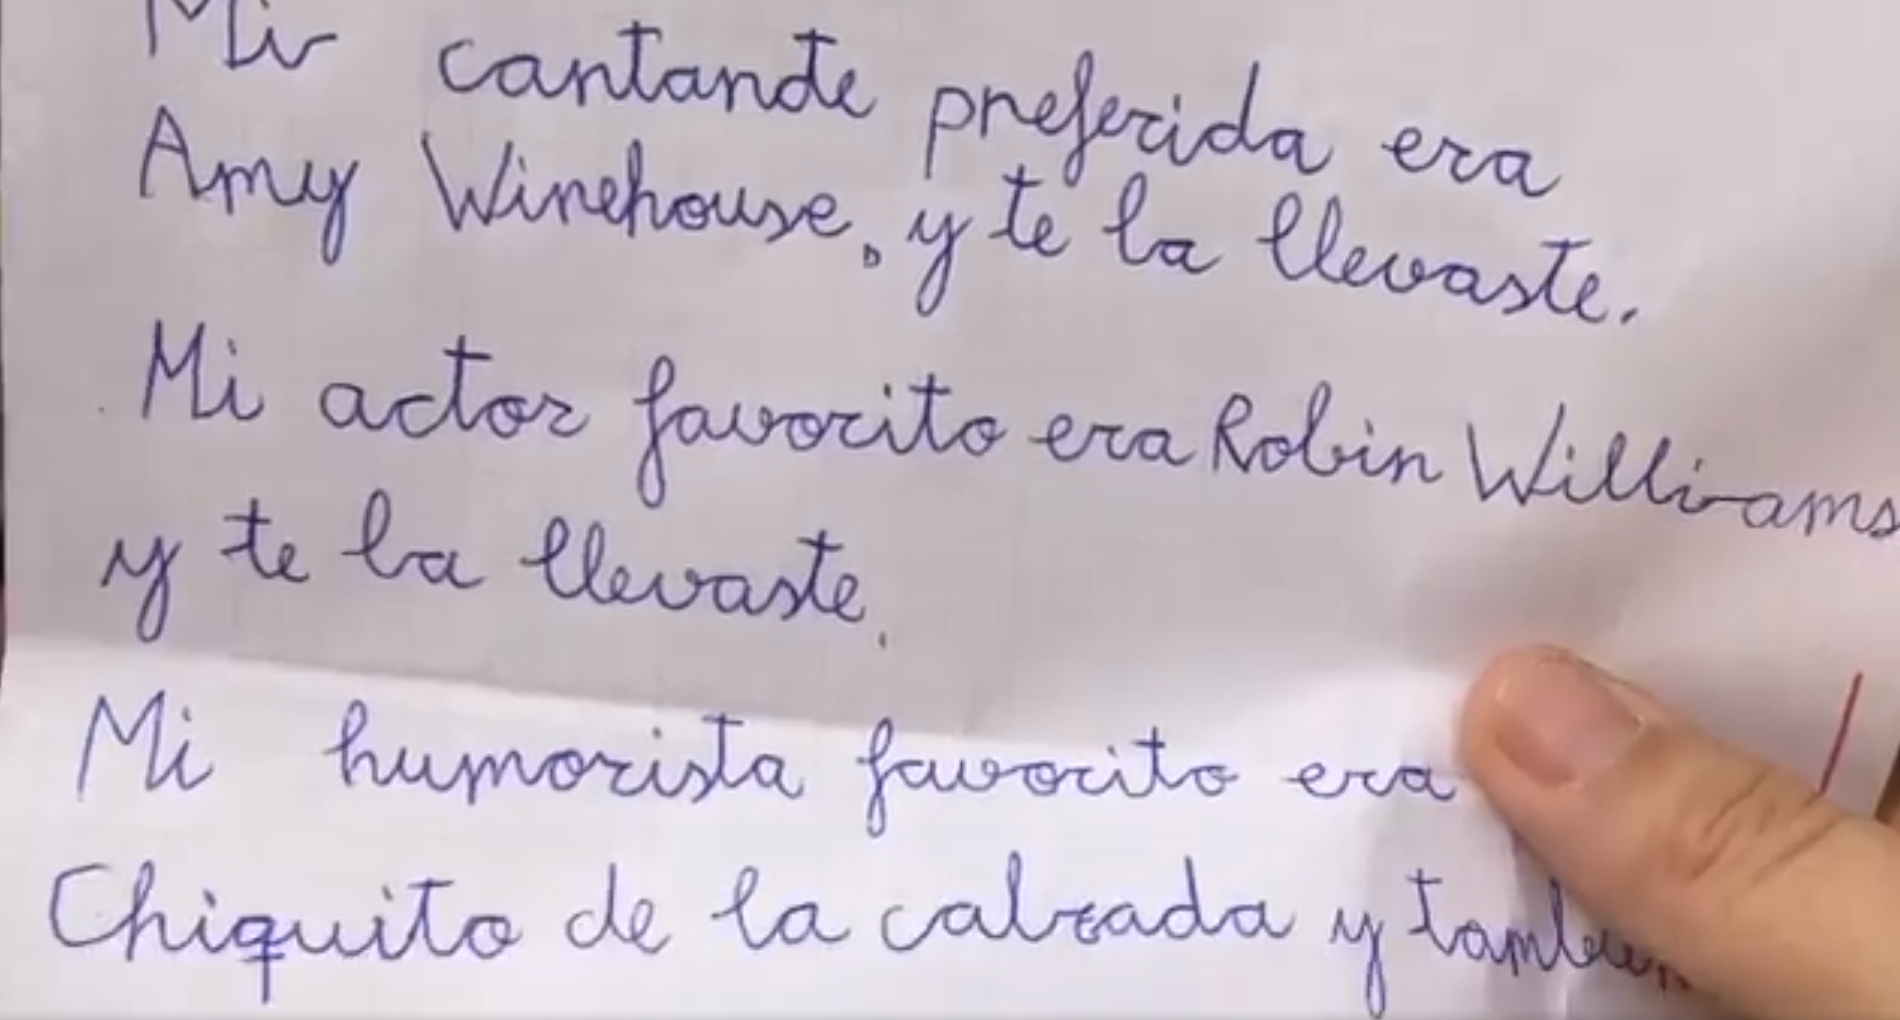 Mi cantande preferida era
Amy Winehouse, y te la llevaste.
Mi actor favorito era Robin Williams
y te la llevaste.
Mi humorista favorito era
Chiquito de la calzada y también